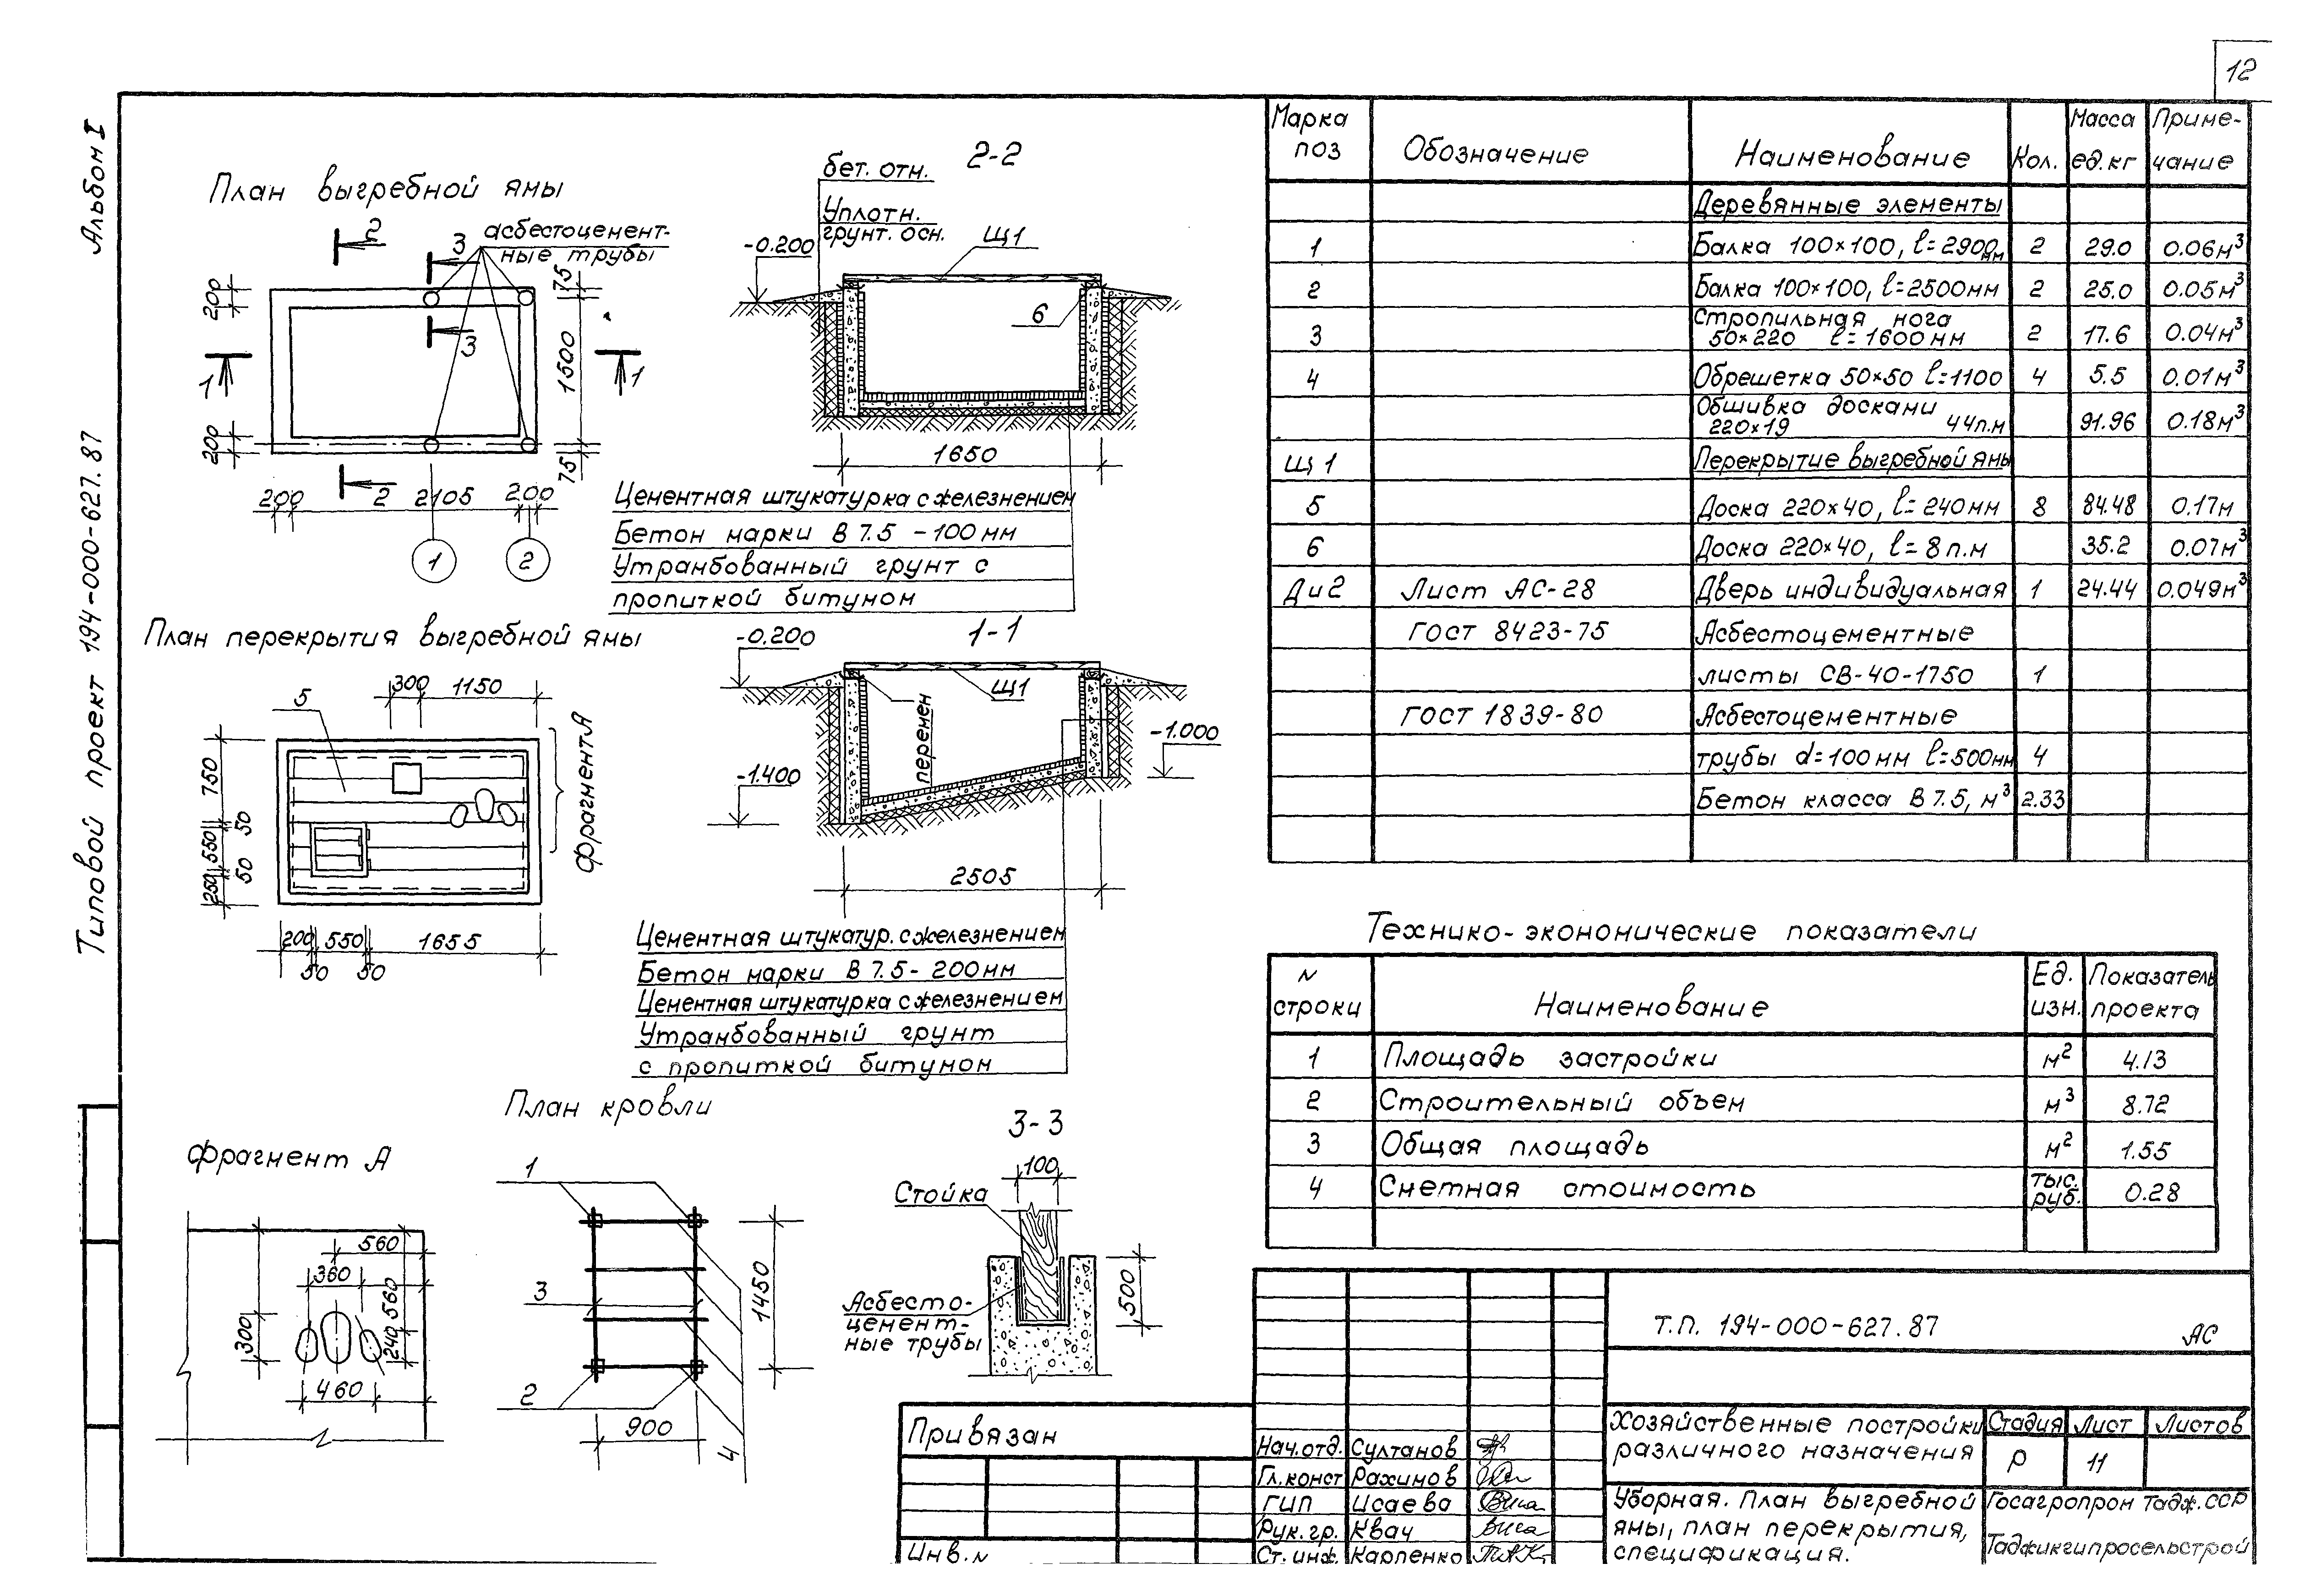 12
Альбом I
Типовой проект 194-000-627.87
План выгребной ямы
асбестоцемент-
ные трубы
2
3
3
2
1
1
200
200
75
1500
75
200
2105
200
1
2
2-2
бет. отм.
Уплотн.
грунт. осн.
-0.200
Щ1
6
1650
Цементная штукатурка с железнением
Бетон марки В 7.5 - 100 мм
Утрамбованный грунт с
пропиткой битумом
План перекрытия выгребной ямы
5
300
1150
фрагмент А
750
50
550
50
250
200
550
1655
50
50
1-1
-0.200
Щ1
перемен
-1.000
-1.400
2505
Цементная штукатур. с железнением
Бетон марки В 7.5 - 200 мм
Цементная штукатурка с железнением
Утрамбованный грунт
с пропиткой битумом
фрагмент А
560
360
560
300
240
460
План кровли
1
3
2
4
1450
900
3-3
100
Стойка
500
Асбесто-
цемент-
ные трубы
Марка поз Обозначение Наименование Кол. Масса ед. кг Приме-чание
Деревянные элементы
1 Балка 100×100, ℓ=2900 мм 2 29.0 0.06 м³
2 Балка 100×100, ℓ=2500 мм 2 25.0 0.05 м³
3 Стропильная нога 50×220 ℓ=1600 мм 2 17.6 0.04 м³
4 Обрешетка 50×50 ℓ=1100 4 5.5 0.01 м³
Обшивка досками 220×19 44 п.м 91.96 0.18 м³
Щ1 Перекрытие выгребной ямы
5 Доска 220×40, ℓ=240 мм 8 84.48 0.17 м
6 Доска 220×40, ℓ=8 п.м 35.2 0.07 м³
Ди2 Лист АС-28 Дверь индивидуальная 1 24.44 0.049 м³
ГОСТ 8423-75 Асбестоцементные
листы СВ-40-1750 1
ГОСТ 1839-80 Асбестоцементные
трубы d=100 мм ℓ=500 мм 4
Бетон класса В 7.5, м³ 2.33
Технико-экономические показатели
N строки Наименование Ед. изм. Показатель проекта
1 Площадь застройки м² 4.13
2 Строительный объем м³ 8.72
3 Общая площадь м² 1.55
4 Сметная стоимость тыс. руб. 0.28
Привязан
Инв. N
Нач. отд. Султанов
Гл. конст Рахимов
ГИП Исаева
Рук. гр. Квач
Ст. инж. Карпенко
Т.П. 194-000-627.87 АС
Хозяйственные постройки
различного назначения
Стадия Лист Листов
Р 11
Уборная. План выгребной
ямы, план перекрытия,
спецификация.
Госагропром Тадж. ССР
Таджикгипросельстрой